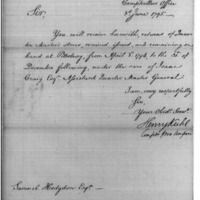 Comptrollers Office
3d June 1795.
Sir,
You will receive herewith, returns of Quarter
Master Stores, received, issued, and remaining on
hand at Pittsburg, from April 5. 1794 to the 31 of
December following, under the care of Isaac
Craig Esqr. Assistant Quarter Master General
I am, very respectfully
Sir,
Your Obedt. Servt.
Henry Kuhl
Samuel Hodgdon Esqr.